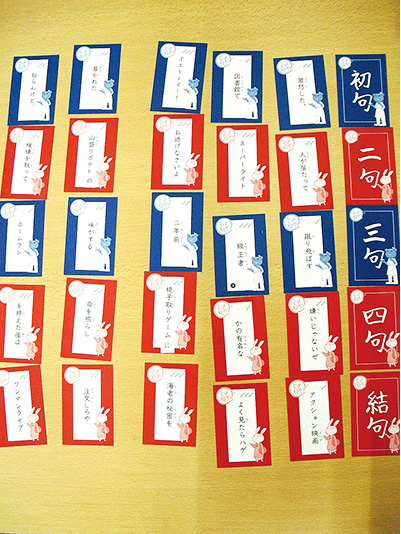 初句
二句
三句
四句
結句
激怒した、
人が居たって
蹴り飛ばす
嫌いじゃないぜ
アクション映画
図書館で
スーパーライト
級王者
かの有名な
よく見たらハゲ
イエーイ！！
お逃げなさいよ
二年前
椅子取りゲームに
海老の秘密を
暴かれた
山盛りポテトの
味がする
命を鳴らし
注文しろや
知らんけど、
機嫌を取って
ホームラン
を終えた後は
ワンマンライブ